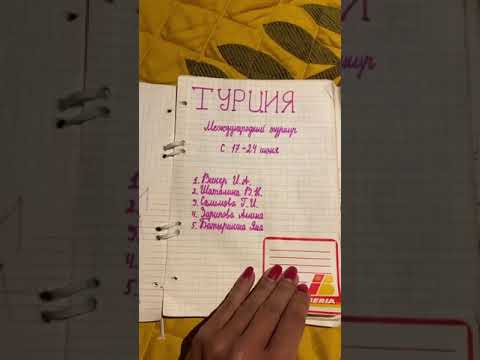 ТУРЦИЯ
Международный турнир
С 17-24 июня
1. Винер И.А.
2. Шаталина В.Н.
3. Салимова Г.И.
4. Зарипова Амина
5. Батыршина Яна
IBERIA